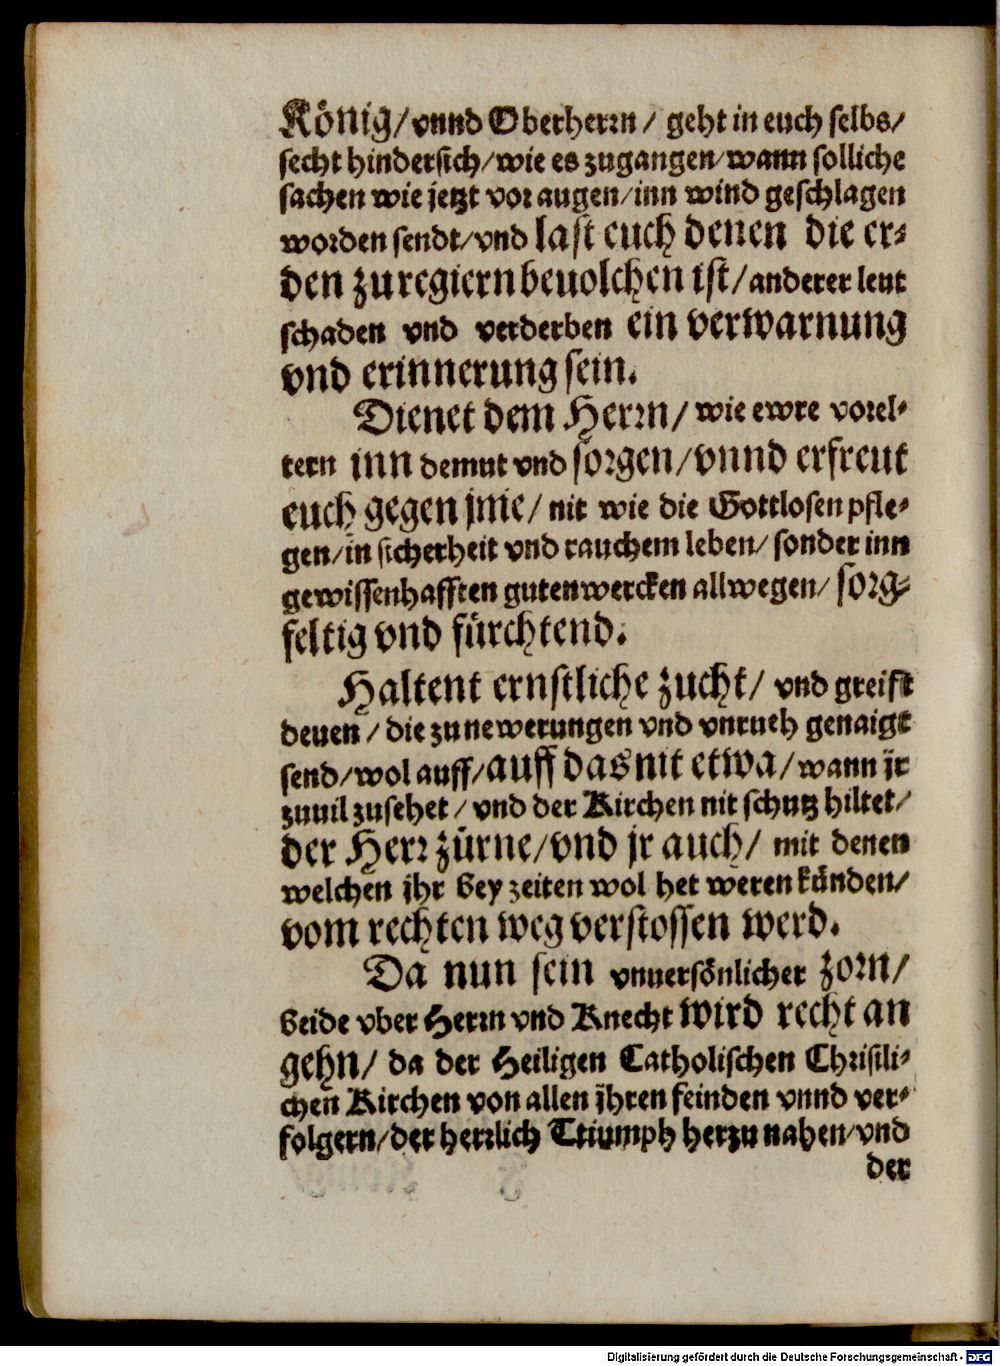 König/vnnd Oberherrn/ geht in euch selbs/
secht hindersich/wie es zugangen/wann solliche
sachen wie jetzt vor augen/inn wind geschlagen
worden sendt/vnd last euch denen die er-
den zu regiern beuolchen ist/anderer leut
schaden vnd verderben ein verwarnung
vnd erinnerung sein.
Dienet dem Herrn/ wie ewre vorel-
tern inn demut vnd sorgen/vnnd erfreut
euch gegen jme/ nit wie die Gottlosen pfle-
gen/in sicherheit vnd rauchem leben/ sonder inn
gewissenhafften guten wercken allwegen/ sorg-
feltig vnd fürchtend.
Haltent ernstliche zucht/ vnd greift
denen/ die zu newerungen vnd vnrueh genaigt
send/wol auff/auff das nit etwa/wann jr
zuuil zusehet/ vnd der Kirchen nit schutz hiltet/
der Herr zürne/vnd jr auch/ mit denen
welchen jhr bey zeiten wol het weren künden/
vom rechten weg verstossen werd.
Da nun sein vnuersönlicher zorn/
beide vber Herrn vnd Knecht wird recht an
gehn/ da der Heiligen Catholischen Christli-
chen Kirchen von allen jhren feinden vnnd ver-
folgern/der herrlich Triumph herzu nahen/vnd
der
Digitalisierung gefördert durch die Deutsche Forschungsgemeinschaft - DFG